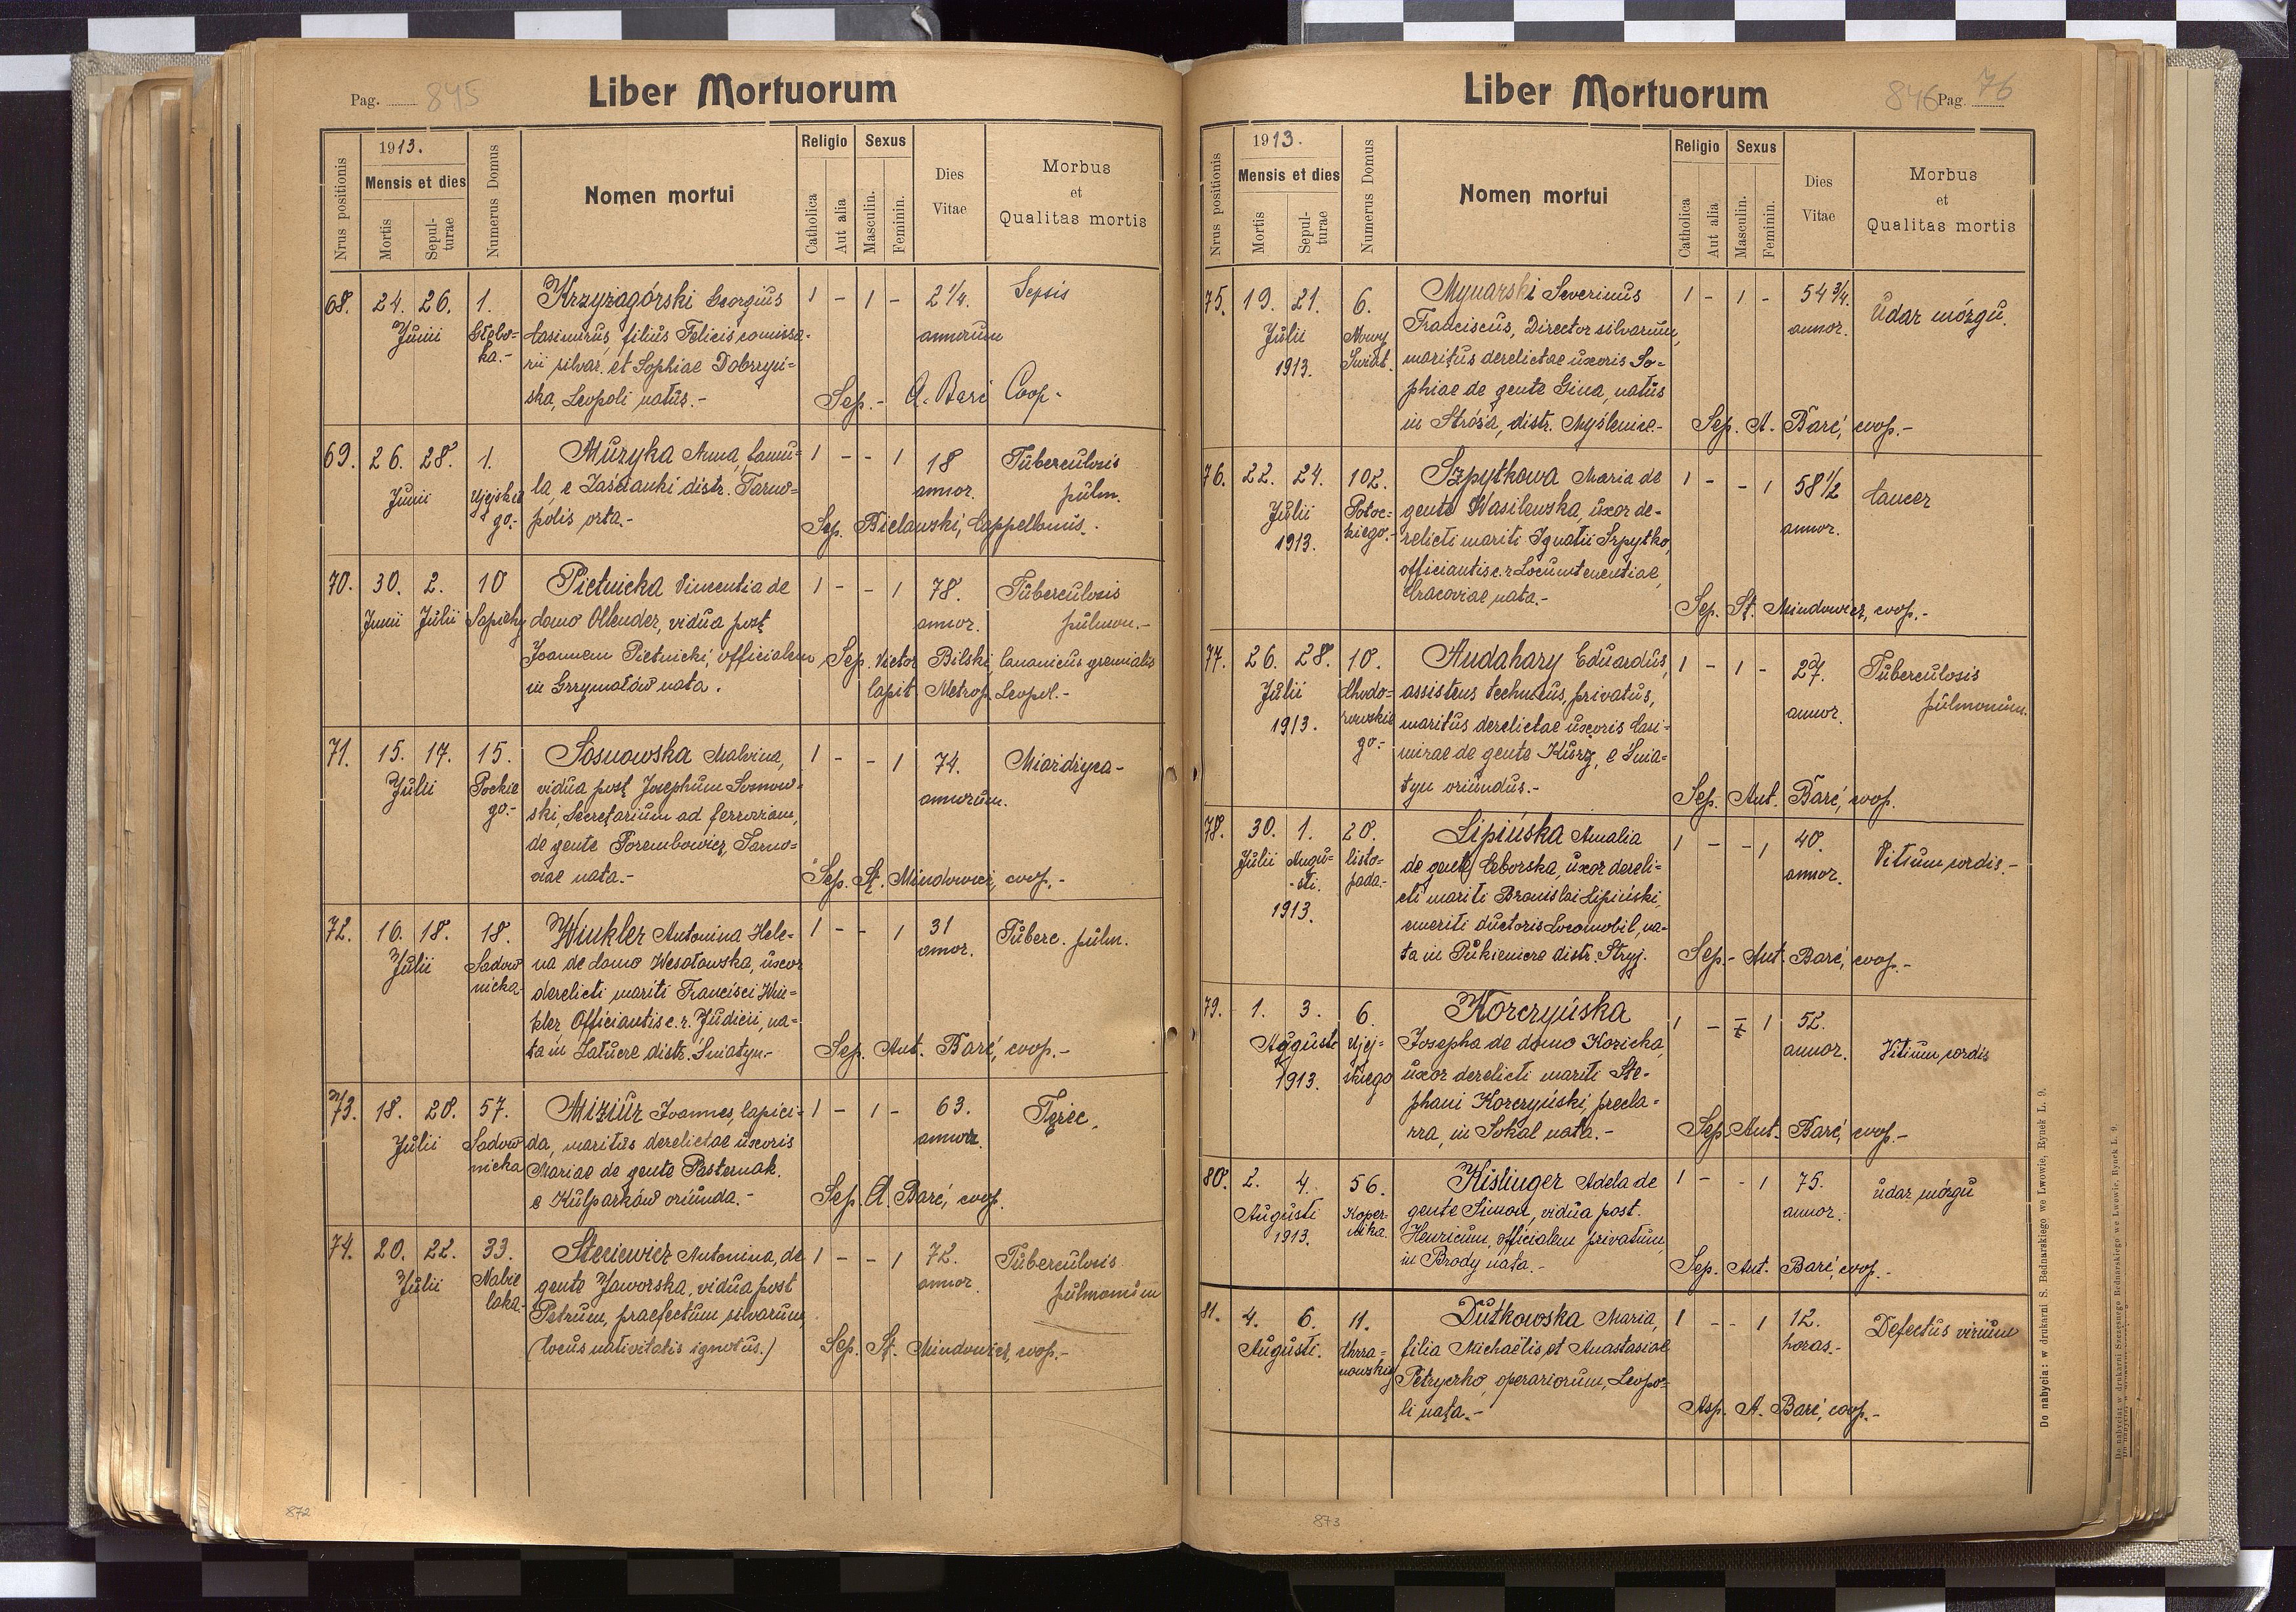 Pag. 845
Liber Mortuorum
Nrus positionis
1913.
Mensis et dies
Mortis
Sepulturae
Numerus Domus
Nomen mortui
Religio
Catholica
Aut alia
Sexus
Masculin.
Feminin.
Dies Vitae
Morbus et Qualitas mortis
68. 24. 26. 1. Krzyżagórski Georgius 1 - 1 - 2 1/4. Sepsis
Junii Głębo- Casimirus, filius Felicis comissa- annorum
ka.- rii silvar. et Sophiae Dobrzyń-
ska, Leopoli natus.- Sep.- A. Barć Coop.-
69. 26. 28. 1. Muzyka Anna, famu- 1 - - 1 18 Tuberculosis
Junii Ujejskie la, e Zaścianki distr. Tarno- annor. pulm.
go.- polis orta.- Sep. Bielawski, Cappellanus.
70. 30. 2. 10 Pietnicka Vincentia de 1 - - 1 78. Tuberculosis
Junii Julii Sapiehy domo Ollender, vidua post annor. pulmon.-
Joannem Pietnicki, officialem Sep. Victor Bilski, Canonicus gremialis
in Grzymałów nata. Capit. Metrop. Leopol.-
71. 15. 17. 15. Sosnowska Malvina, 1 - - 1 74. Miardyca-
Julii vidua post Josephum Sosnow- annorum.
go.- ski, Secretarium ad ferroriam,
de gente Porembowicz, Tarno-
viae nata.- Sep. St. Mindowicz, coop.-
72. 16. 18. 18. Winkler Antonina Hele- 1 - - 1 31 Tuberc. pulm.
Julii Sadow na de domo Wesołowska, uxor annor.
nicka derelicti mariti Francisci Win-
kler Officiantis c. r. Judicii, na-
ta in Załucze distr. Śniatyn.- Sep. Ant. Barć, coop.-
73. 18. 20. 57. Miziur Joannes, lapici- 1 - 1 - 63. Tężec.
Julii Sadow da, maritus derelictae uxoris annor.
nicka Mariae de gente Pasternak.
e Kulparków oriunda.- Sep. A. Barć, coop.
74. 20. 22. 33. Steciewicz Antonina, de 1 - - 1 72. Tuberculosis
Julii Nabie gente Jaworska, vidua post annor pulmonum
laka. Petrum, praefectum silvarum,
(locus nativitatis ignotus.) Sep. St. Mindowicz, coop.-
872
Liber Mortuorum
846 Pag. 76
Nrus positionis
1913.
Mensis et dies
Mortis
Sepulturae
Numerus Domus
Nomen mortui
Religio
Catholica
Aut alia
Sexus
Masculin.
Feminin.
Dies Vitae
Morbus et Qualitas mortis
75. 19. 21. 6. Mynarski Severinus 1 - 1 - 54 3/4. Udar mózgu.
Julii Nowy Franciscus, Director silvarum, annor.
1913. Świat. maritus derelictae uxoris So-
phiae de gente Gina, natus
in Stróża, distr. Myślenice.- Sep. A. Barć, coop.-
76. 22. 24. 102. Szpytkowa Maria de 1 - - 1 58 1/2 Cancer
Julii Potoc- gente Wasilewska, uxor de- annor.
1913. kiego.- relicti mariti Ignatii Szpytko,
officiantis c. r. Locumtenentiae,
Cracoviae nata.- Sep. St. Mindowicz, coop.-
77. 26. 28. 10. Andahazy Eduardus, 1 - 1 - 27. Tuberculosis
Julii Chodo- assistens technicus, privatus, annor. pulmonum.
1913. rowskie maritus derelictae uxoris Casi-
go.- mirae de gente Kurz, e Śnia-
tyn oriundus.- Sep. Ant. Barć, coop.
78. 30. 1. 20. Lipińska Amalia 1 - - 1 40. Vitium cordis.-
Julii Augu- listo- de gente Ceborska, uxor dereli- annor.
-sti. pada.- cti mariti Bronislai Lipiński,
1913. emeriti ductoris Locomobil, na-
ta in Pukienicze distr. Stryj. Sep.- Ant. Barć, coop.-
79. 1. 3. 6. Korczyńska 1 - 1 52. Vitium cordis
Augusti Ujej- Josepha de domo Kozicka, annor.
1913. skiego uxor derelicti mariti Ste-
phani Korczyński, precla-
rra, in Sokal nata.- Sep. Ant. Barć, coop.-
80. 2. 4. 56. Kislinger Adela de 1 - - 1 75. udar mózgu
Augusti Koper- gente Simon, vidua post. annor.
1913. nika. Henricum, officialem privatum,
in Brody nata.- Sep. Ant. Barć, coop.-
81. 4. 6. 11. Dutkowska Maria, 1 - - 1 12. Defectus virium
Augusti. Chrza- filia Michaëlis et Anastasiae horas.-
nowskiej Petryczko, operariorum, Leopo-
li nata.- Asp. A. Barć, coop.-
873
Do nabycia: w drukarni S. Bednarskiego we Lwowie, Rynek L. 9.
Do nabycia: w drukarni Szczęsnego Bednarskiego we Lwowie, Rynek L. 9.